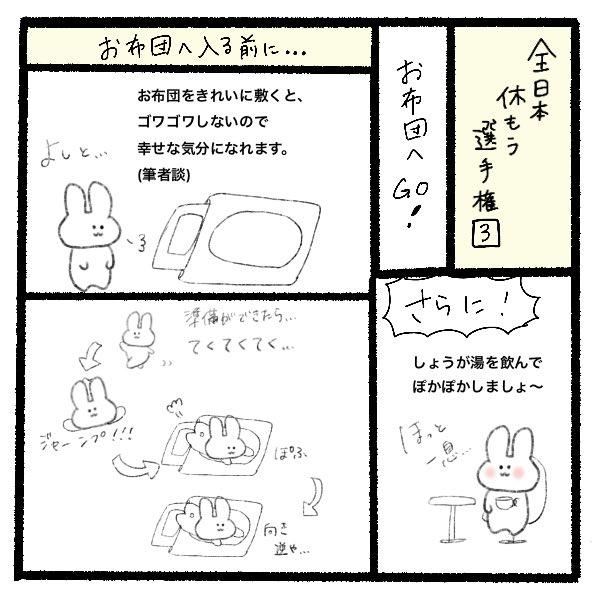 全日本
休もう
選手権
3
お布団へGO!
お布団へ入る前に…
お布団をきれいに敷くと、
ゴワゴワしないので
幸せな気分になれます。
(筆者談)
よしと…
さらに!
しょうが湯を飲んで
ぽかぽかしましょ〜
ほっと
一息…
準備ができたら…
てくてくてく…
ジャーンプ!!!
ぽふ
向き
逆や…